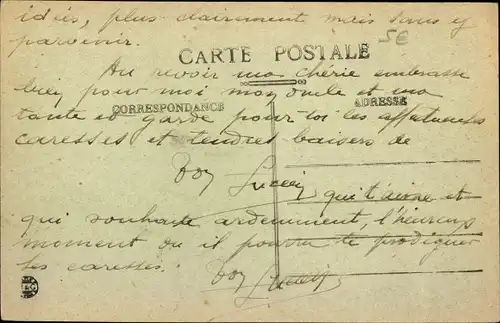 idées, plus clairement mais sans y
parvenir.
5€
CARTE POSTALE
Au revoir ma chérie embrasse
bien pour moi mon oncle et ma
CORRESPONDANCE
ADRESSE
tante et garde pour toi les affectueuses
caresses et tendres baisers de
ton Lucien qui t'aime et
qui souhaite ardemment, l'heureux
moment ou il pourra te prodiguer
ses caresses.
ton Lucien